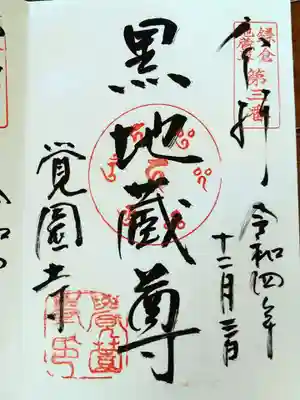 奉拝
鎌倉
地蔵
第三番
令和四年
十二月三日
黒地蔵尊
覚園寺